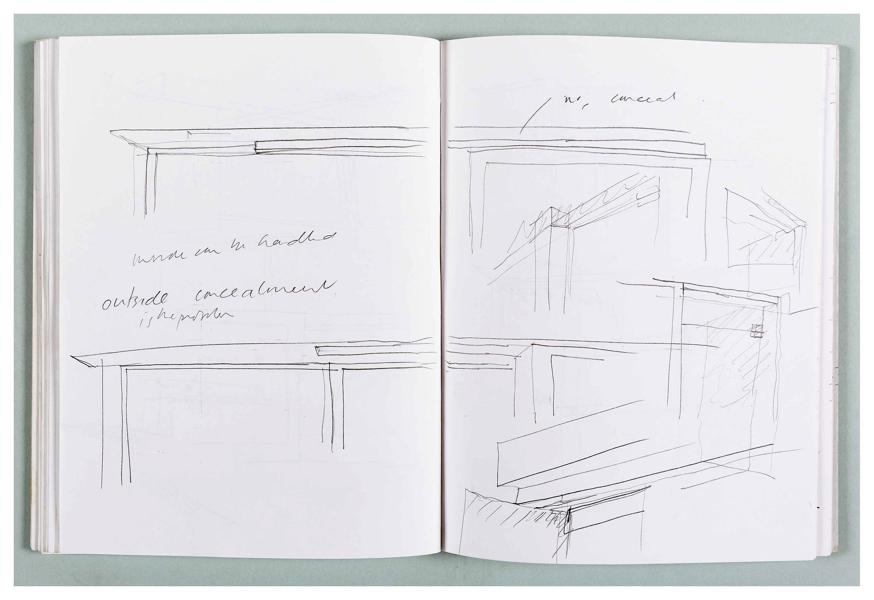 inside can be handled
outside concealment
is the problem
no, conceal